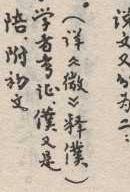 说文又分为二：
（详《徵》释僕）
学者考证僕又是
陪附初文